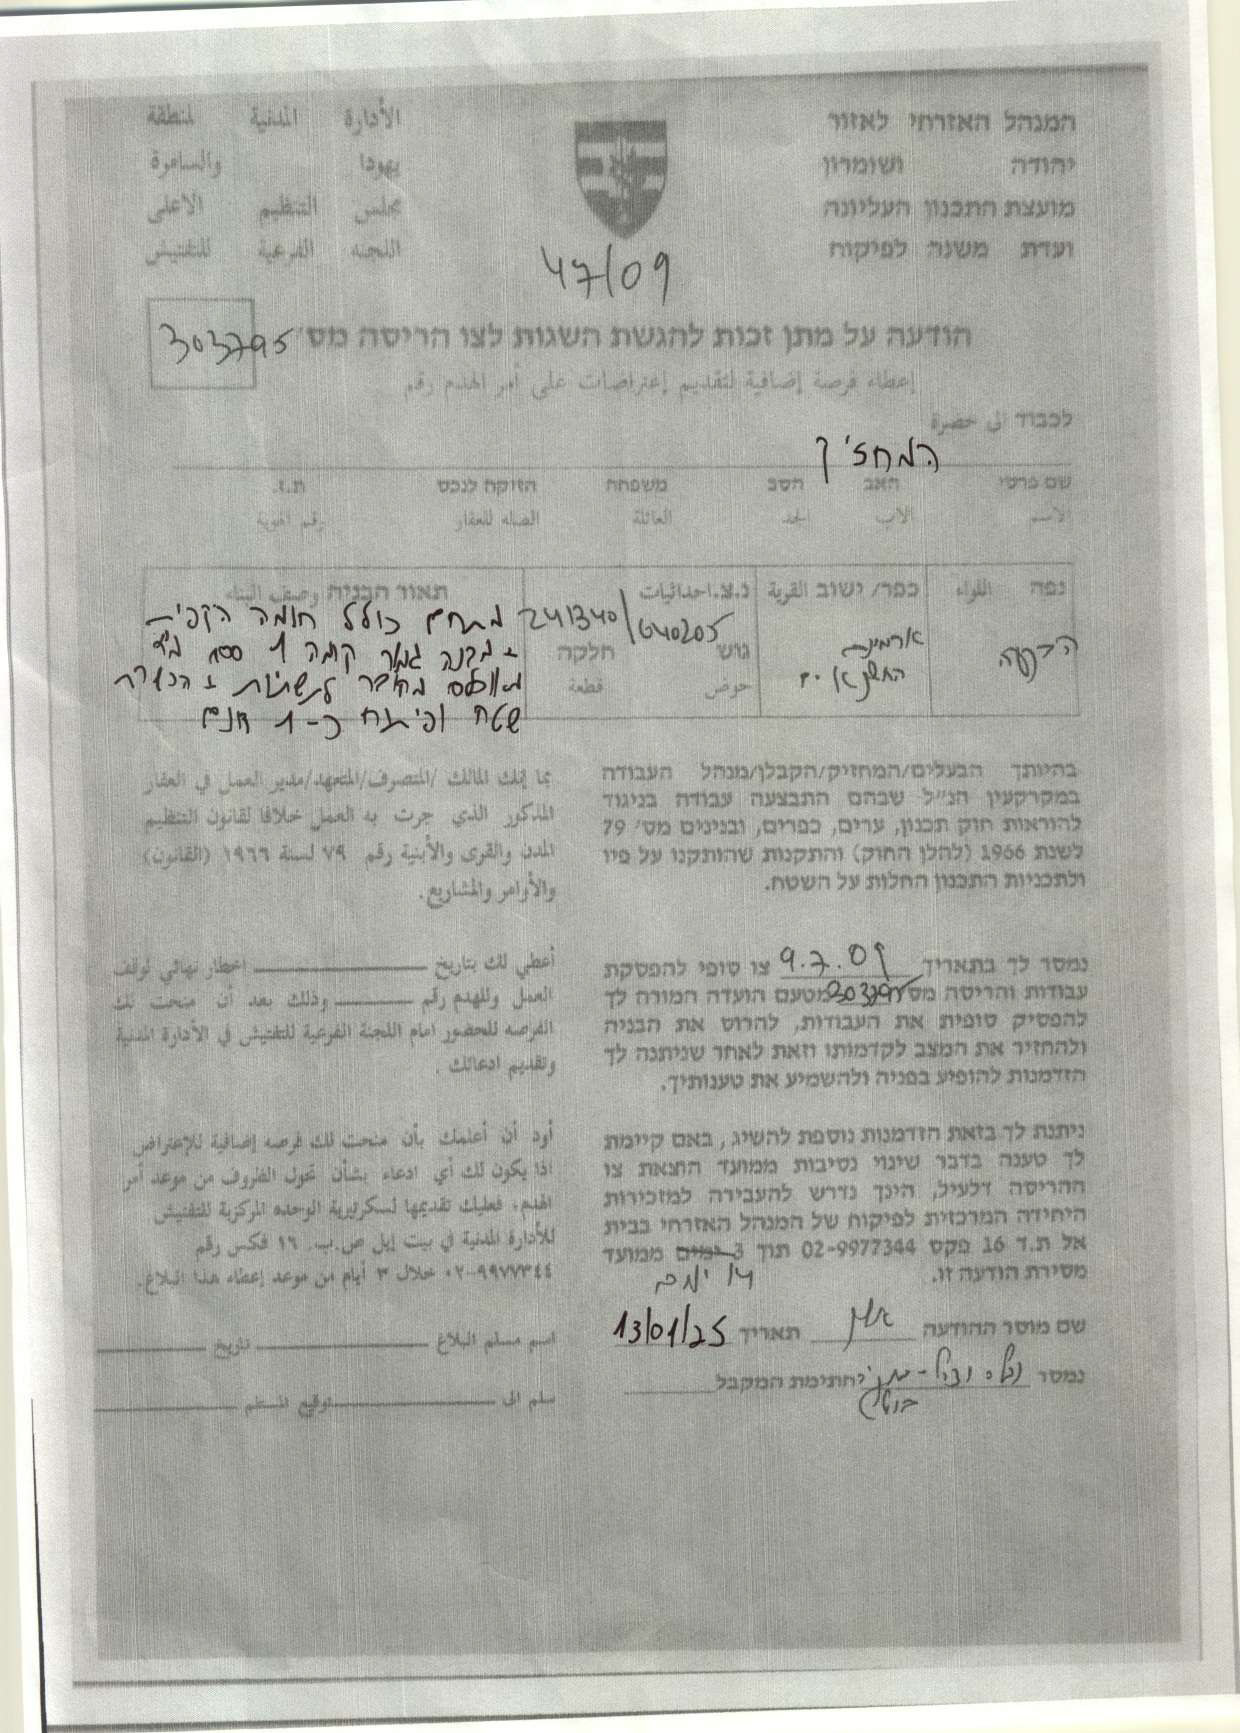 המנהל האזרחי לאזור
יהודה ושומרון
מועצת התכנון העליונה
ועדת משנה לפיקוח
الأدارة المدنية لمنطقة
يهودا والسامرة
مجلس التنظيم الاعلى
اللجنه الفرعية للتفتيش
47/09
הודעה על מתן זכות להגשת השגות לצו הריסה מס׳ 303795
إعطاء فرصة إضافية لتقديم إعتراضات على أمر الهدم رقم
לכבוד الى حضرة
המחזיק
שם פרטי האב הסב משפחה הזוקה לנכס ת.ז.
الاسم الاب الجد العائلة الصله للعقار رقم الهوية
נפה اللواء כפר/ ישוב القرية נ.צ.احداثيات תאור הבניה وصف البناء
הבקעה
החשמונאים
241340/640205
גוש חלקה
حوض قطعة
מתחם כולל חומה הקפית
מבנה גמר קומה 1 מ"ר
מאוכלס מחובר לתשתיות הכשרת
שטח ופיתוח כ-1 דונם
בהיותך הבעלים/המחזיק/הקבלן/מנהל העבודה
במקרקעין הנ״ל שבהם התבצעה עבודה בניגוד
להוראות חוק תכנון, ערים, כפרים, ובנינים מס׳ 79
לשנת 1966 (להלן החוק) והתקנות שהותקנו על פיו
ולתכניות התכנון החלות על השטח.
بما إنك المالك /المتصرف/المتعهد/مدير العمل في العقار
المذكور الذي جرت به العمل خلافا لقانون التنظيم
المدن والقرى والأبنية رقم ٧٩ لسنة ١٩٦٦ (القانون)
والأوامر والمشاريع.
נמסר לך בתאריך 9.7.09 צו סופי להפסקת
עבודות והריסה מס 303795 מטעם הועדה המורה לך
להפסיק סופית את העבודות, להרוס את הבניה
ולהחזיר את המצב לקדמותו וזאת לאחר שניתנה לך
הזדמנות להופיע בפניה ולהשמיע את טענותיך.
أعطي لك بتاريخ اخطار نهائي لوقف
العمل وللهدم رقم وذلك بعد أن منحت لك
الفرصه للحضور امام اللجنة الفرعية للتفتيش في الأدارة المدنية
وتقديم ادعائك .
ניתנת לך בזאת הזדמנות נוספת להשיג , באם קיימת
לך טענה בדבר שינוי נסיבות ממועד הוצאת צו
ההריסה דלעיל, הינך נדרש להעבירה למזכירות
היחידה המרכזית לפיקוח של המנהל האזרחי בבית
אל ת.ד 16 פקס 02-9977344 תוך 3 ימים ממועד
ימים
מסירת הודעה זו.
أود أن أعلمك بأن منحت لك فرصه إضافية للإعتراض
اذا يكون لك أي ادعاء بشأن تحول الظروف من موعد أمر
الهدم، فعليك تقديمها لسكرتيرية الوحده المركزية للتفتيش
للأدارة المدنية في بيت إيل ص.ب. ١٦ فكس رقم
٠٢-٩٩٧٧٣٤٤ خلال ٣ أيام من موعد إعطاء هذا البلاغ.
שם מוסר ההודעה תאריך 13/01/25
נמסר חתימת המקבל
اسم مسلم البلاغ تاريخ
سلم الى توقيع المستلم